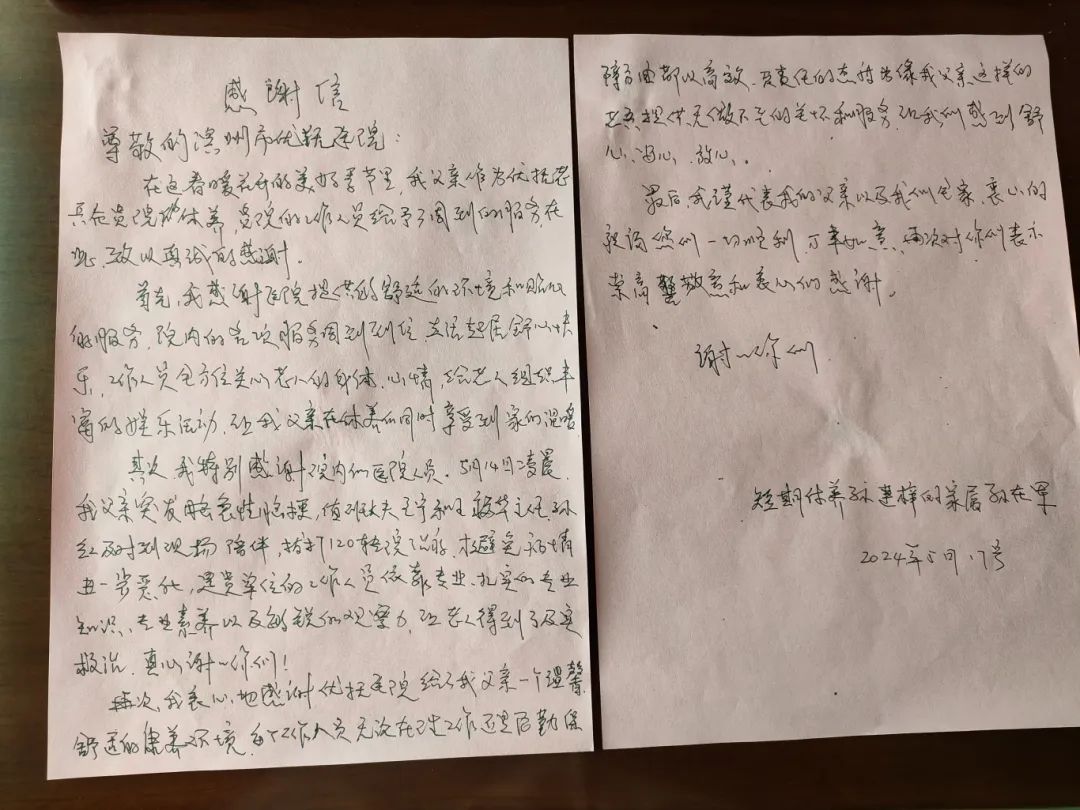 感谢信
尊敬的滨州市优抚医院：
在这春暖花开的美好季节里，我父亲作为优抚老
兵在贵院休养，贵院的工作人员给予了周到的服务，在
此，致以真诚的感谢。
首先，我感谢医院提供的舒适的环境和贴心
的服务，院内的各项服务周到到位，生活起居舒心快
乐，工作人员全方位关心老人的身体、心情，给老人组织丰
富的娱乐活动，让我父亲在休养的同时享受到家的温暖。
其次，我特别感谢院内的医院人员。5月14日凌晨
我父亲突发急性脑梗，值班大夫王宁和王 华主任、孙
红及时到现场陪伴，拨打120转院治疗，才避免病情
进一步恶化，是贵单位的工作人员依靠专业、扎实的专业
知识、专业素养以及敏锐的观察力，让老人得到了及实
救治，真心谢谢你们！
再次，我衷心地感谢优抚医院给了我父亲一个温馨
舒适的康养环境，每个工作人员无论在卫生工作还是后勤保
障方面都以高效、负责任的 为像我父亲这样的
老兵提供无微不至的关怀和服务，让我们感到舒
心、安心、放心。
最后，我谨代表我的父亲以及我们全家，衷心的
祝福您们一切顺利，万事如意，再次对你们表示
崇高 敬意和衷心的感谢。
谢谢你们
短期休养孙建 的家属孙在军
2024年5月17号